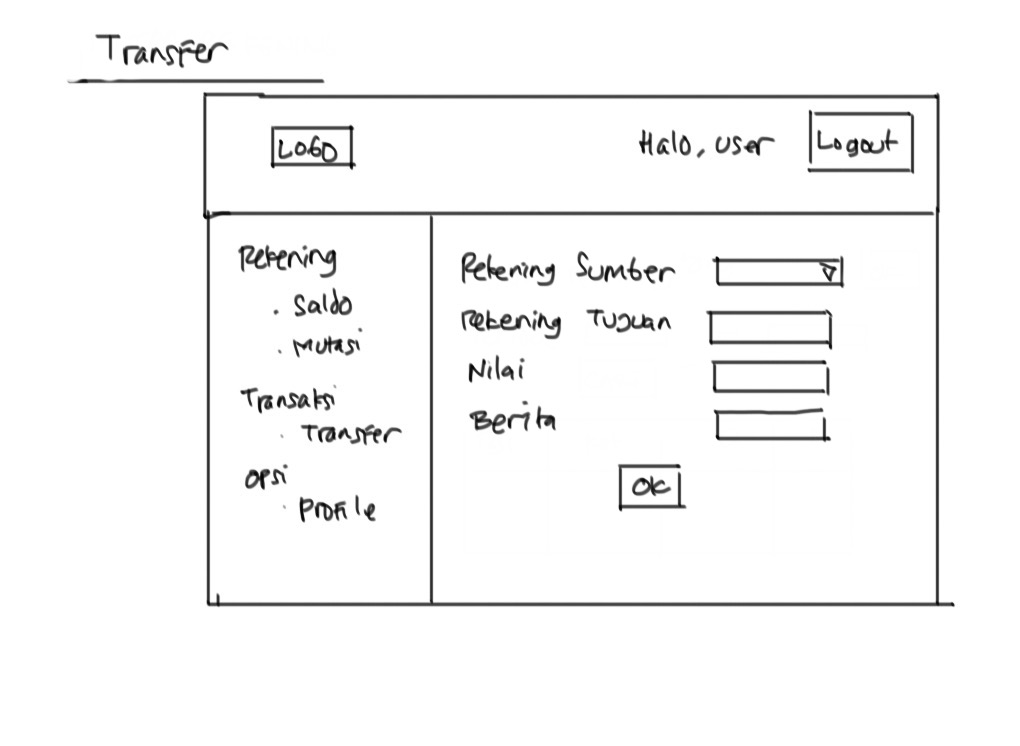 Transfer
LOGO
Halo, user
Logout
Rekening
. Saldo
. Mutasi
Transaksi
. Transfer
Opsi
. Profile
Rekening Sumber
Rekening Tujuan
Nilai
Berita
OK